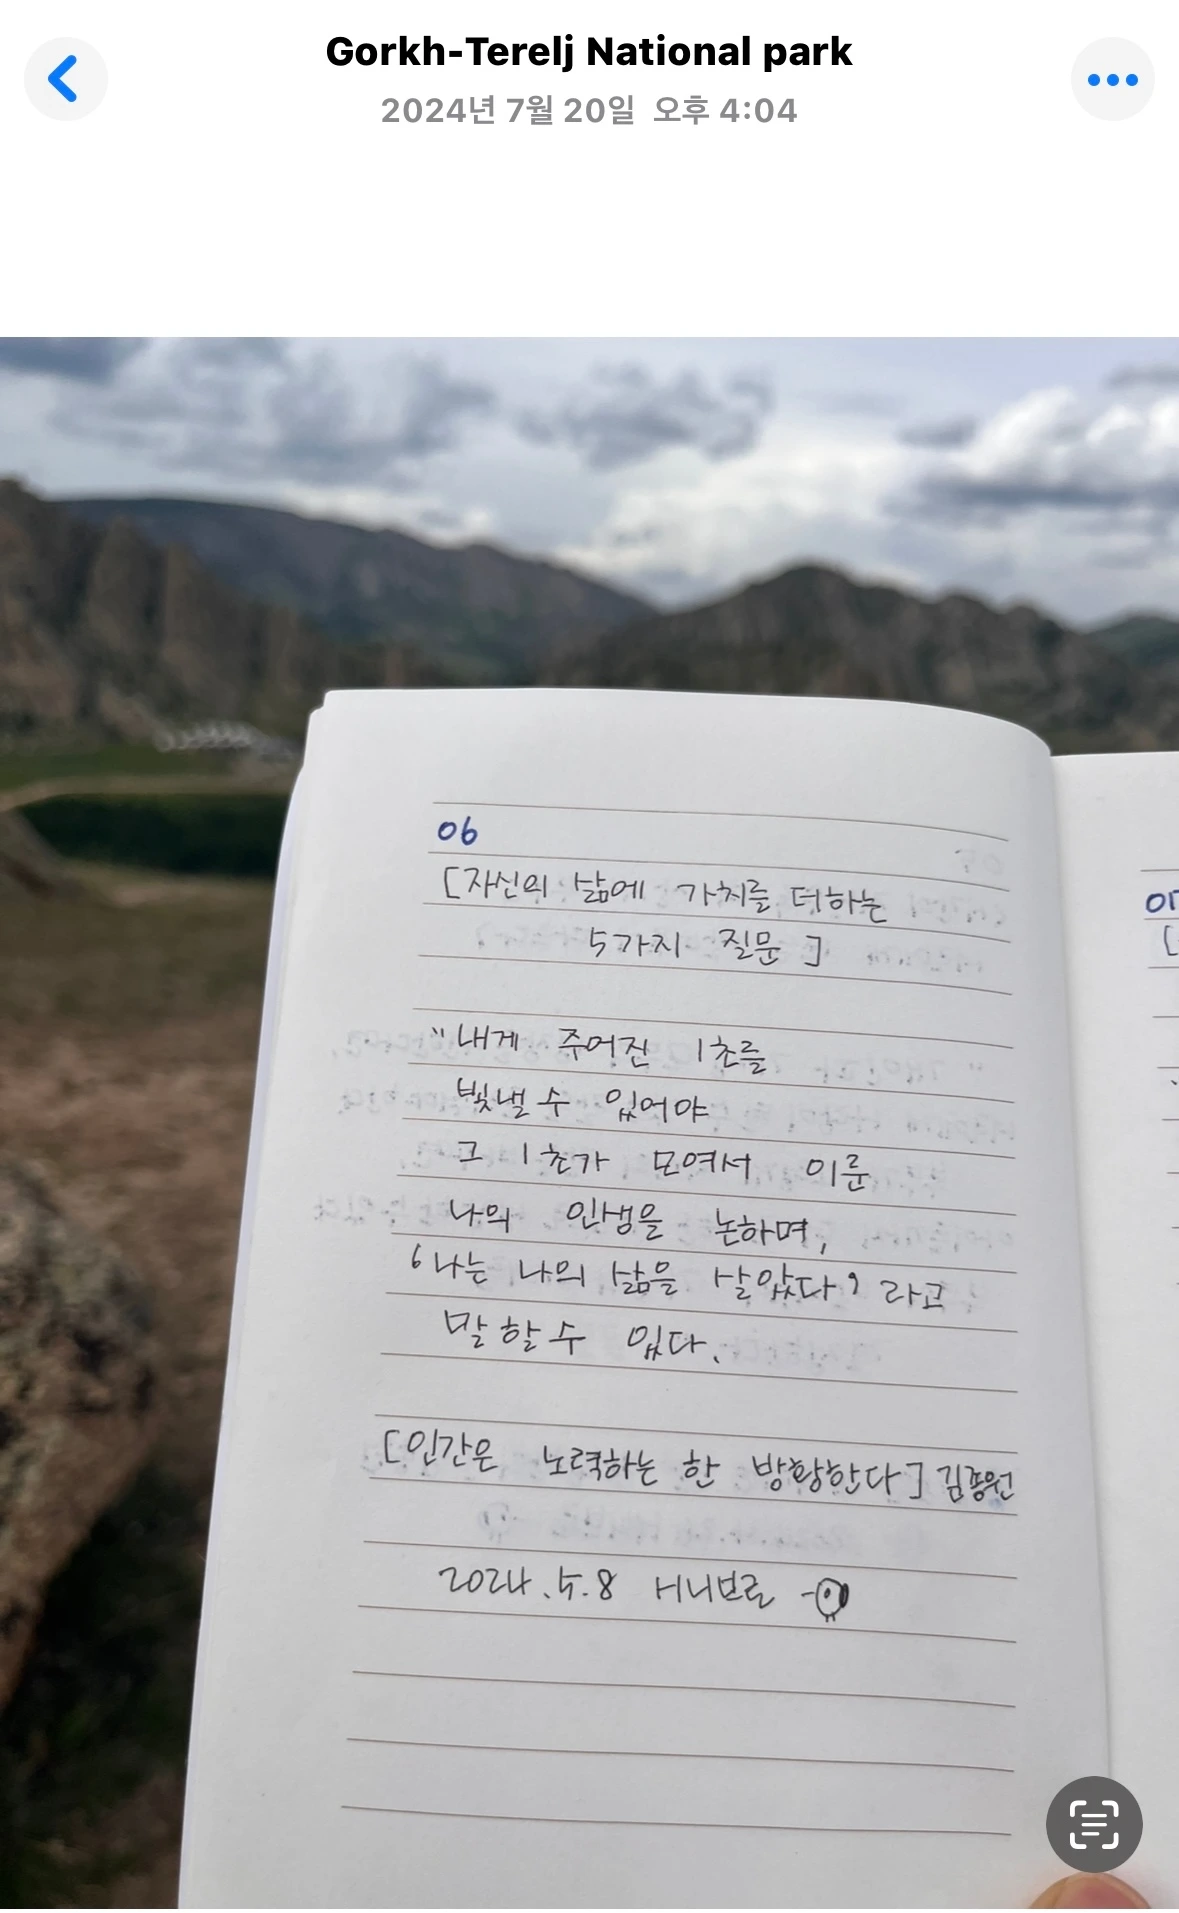 Gorkh-Terelj National park
2024년 7월 20일 오후 4:04
06
[자신의 삶에 가치를 더하는
5가지 질문]
"내게 주어진 1초를
빛낼 수 있어야
그 1초가 모여서 이룬
나의 인생을 논하며,
'나는 나의 삶을 살았다' 라고
말할 수 있다.
[인간은 노력하는 한 방황한다] 김종원
2024.5.8 허니브로
07
[